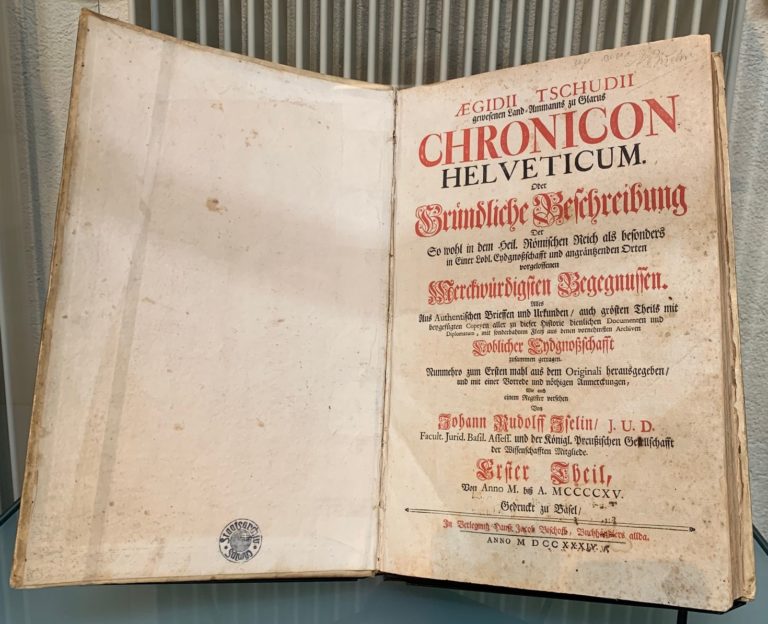 ÆGIDII TSCHUDII
gewesenen Land-Ammanns zu Glarus
CHRONICON
HELVETICUM.
Oder
Gründliche Beschreibung
Der
So wohl in dem Heil. Römischen Reich als besonders
in Einer Lobl. Eydgnoßschafft und angräntzenden Orten
vorgeloffenen
Merckwürdigsten Begegnussen.
Alles
Aus Authentischen Brieffen und Urkunden/ auch grösten Theils mit
beygefügten Copeyen aller zu dieser Historie dienlichen Documenten und
Diplomatum, mit sonderbahrem Fleiß aus denen vornehmsten Archiven
Loblicher Eydgnoßschafft
zusammen getragen.
Nunmehro zum Ersten mahl aus dem Originali herausgegeben/
und mit einer Vorrede und nöthigen Anmerckungen,
Wie auch
einem Register versehen
Von
Johann Rudolff Iselin/ J. U. D.
Facult. Jurid. Basil. Assess. und der Königl. Preußischen Gesellschafft
der Wissenschafften Mitgliede.
Erster Theil,
Von Anno M. biß A. MCCCCXV.
Gedruckt zu Basel/
In Verlegung Hanß Jacob Bischoff, Buchhändlers allda.
ANNO M DCC XXXIV.